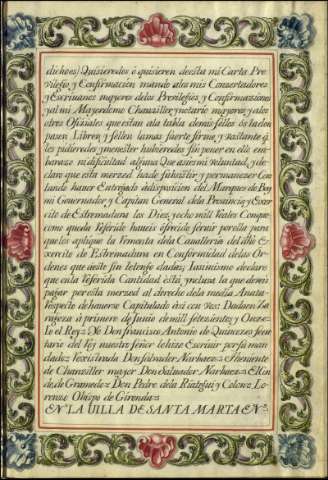 dichoes) Quisieredes ó quisieren deesta mi Carta Pre
vilegio, y Confirmación mando alos mis Conzertadores
y Escrivanos mayores delos Previlegios, y Confirmaziones
yal mi Mayordomo Chanziller y notario mayores, y alos
otros Ofiziales que estan ala tabla demis sellos os laden
pasen Libren, y sellen lamas fuerte firme, y vastante q.
les pidieredes, y menester hubieredes sin poner en ello em
barazo ni dificultad alguna Que asi es mi voluntad, y de
claro que esta merzed hade subsistir, y permanezer Cons
tando haver Entregado adisposizion del Marques de Bay
mi Governador y Capitan General dela Provinzia y Exer
cito de Estremadura los Diez, y ocho mill Reales Conque
como queda Referido haveis ofrecido servir porella para
que los aplique la Remonta dela Cavalleria del dho E
xercito de Estremadura en Conformidad delas Or
denes que aeste fin letengo dadas, Yasimismo declaro
que enla Referida Cantidad está ynclusa la que deveis
pagar por esta merzed al derecho dela media Anata
respecto de haverse Capitulado asi con vos: Dada en Za
ragoza á primero de Junio demill setezientos, y Onze=
Yo el Rey= Yo Don Francisco Antonio de Quincozes secre
tario del Rey nuestro señor lo hize Escrivir por su man
dado= Rexistrada Don Salvador Narbaez= Theniente
de Chanziller mayor Don Salvador Narbaez= El Con
de de Gramedo= Don Pedro dela Riategui y Colon= Lo
renzo Obispo de Gironda=
EN LA VILLA DE SANTA MARTA EN